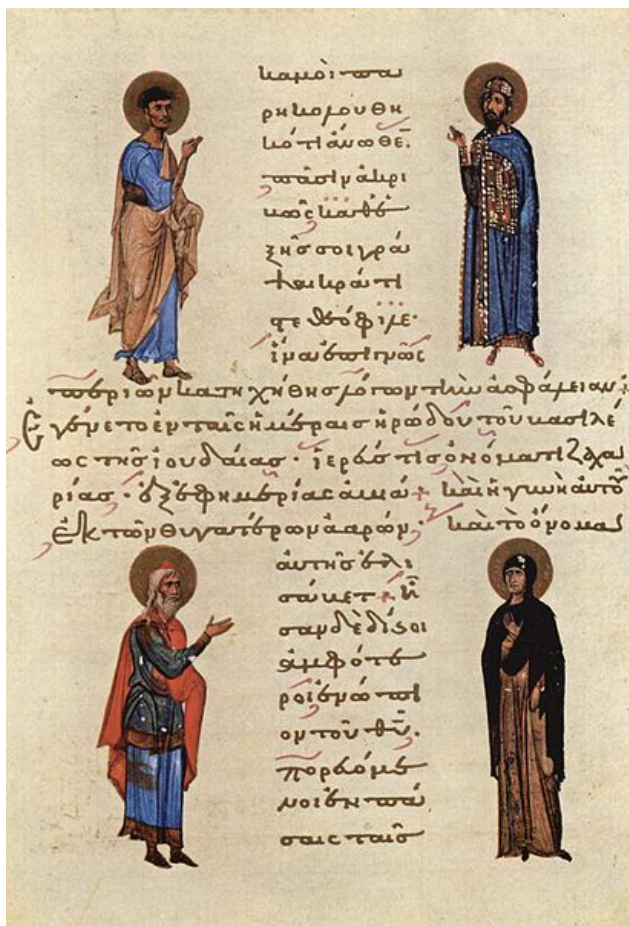 κἀμοὶ πα
ρηκολουθη
κότι ἄνωθε̅
πᾶσιν ἀκρι
βῶς καθε
ξῆς σοι γρά
ψαι κράτι
στε θεόφιλε·
ἵνα ἐπιγνῶς
περὶ ὧν κατηχήθης λόγων τὴν ἀσφάλειαν·
Ἐγένετο ἐν ταῖς ἡμέραις ἡρώδου τοῦ βασιλέ
ως τῆς ἰουδαίας · ἱερεύς τις ὀνόματι ζαχα
ρίας · ἐξ ἐφημερίας ἀβιά + καὶ ἡ γυνὴ αὐτοῦ
ἐκ τῶν θυγατέρων ἀαρών· καὶ τὸ ὄνομα
αὐτῆς ἐλι
σάβετ + ἦ
σαν δὲ δίκαιοι
ἀμφότε
ροι ἐνώπι
ον τοῦ θ̅υ̅·
πορευόμε
νοι ἐν πά
σαις ταῖς